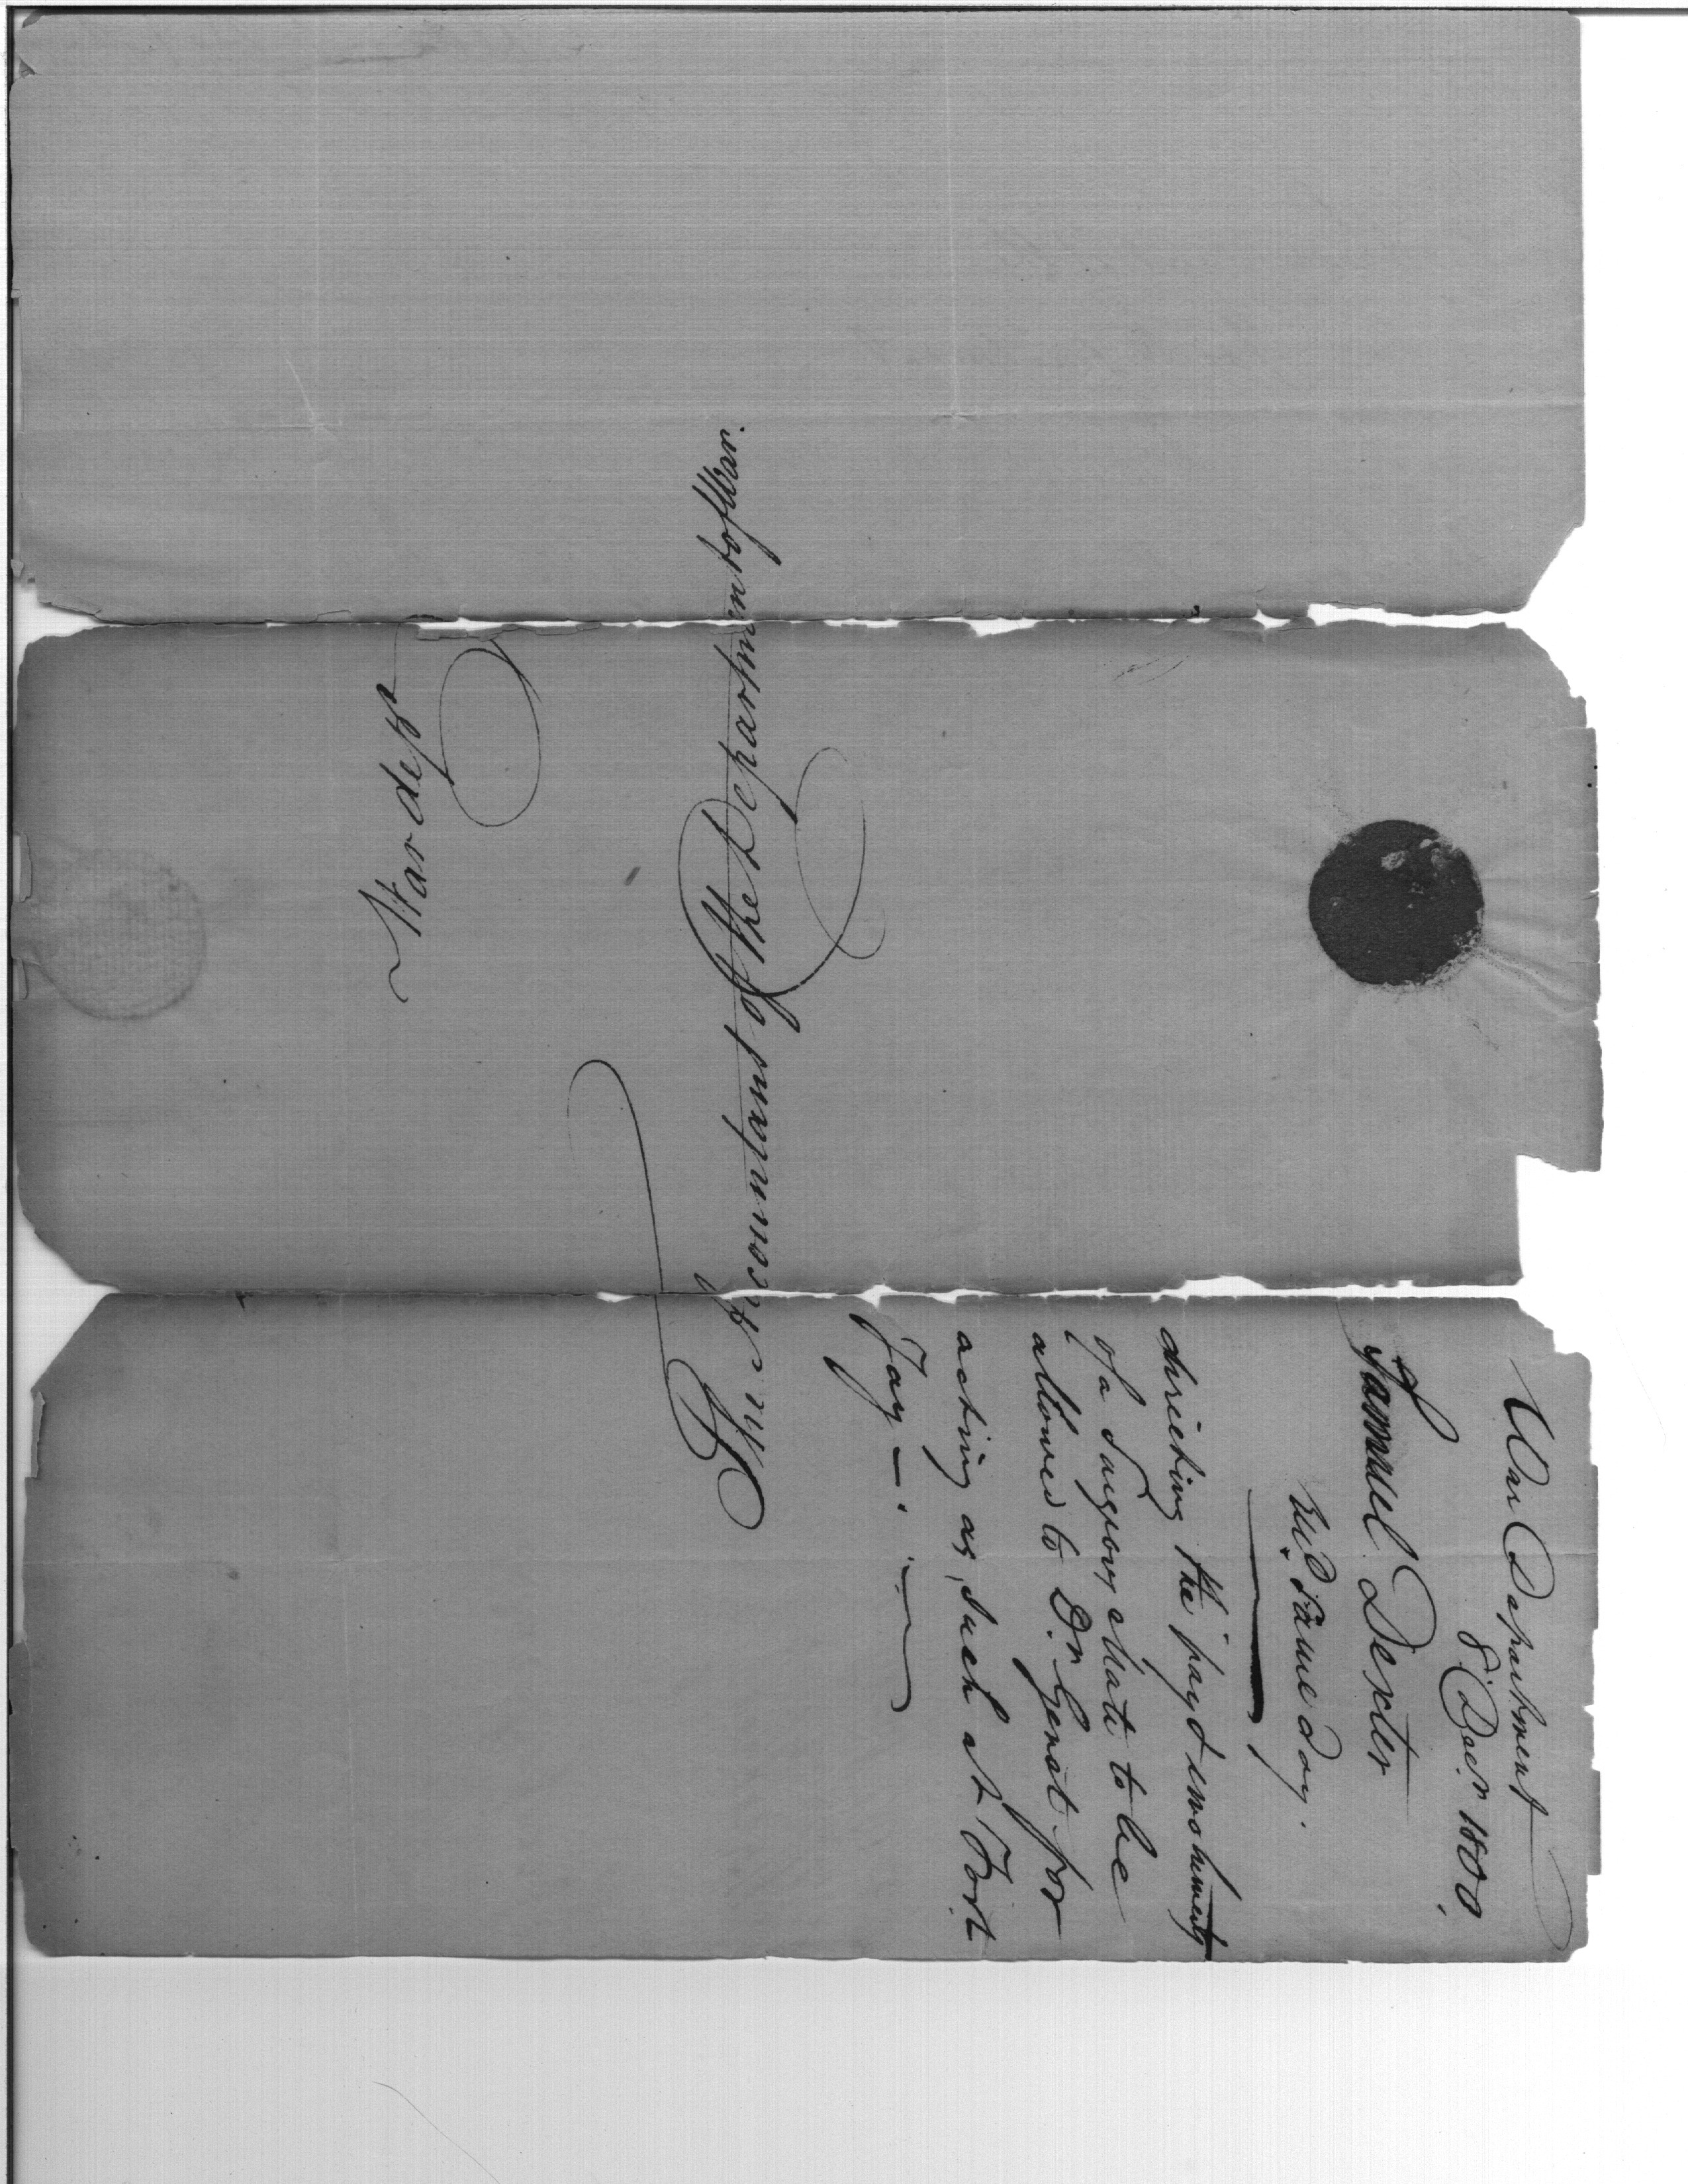 War Dept
The Accountant of the Department of War.
War Department
8 Decr. 1800.
Samuel Dexter
recd. Same day.
directing the pay & emoluments
of a Surgeons Mate to be
allowed to Dr. Genat for
acting as such at Fort
Jay —